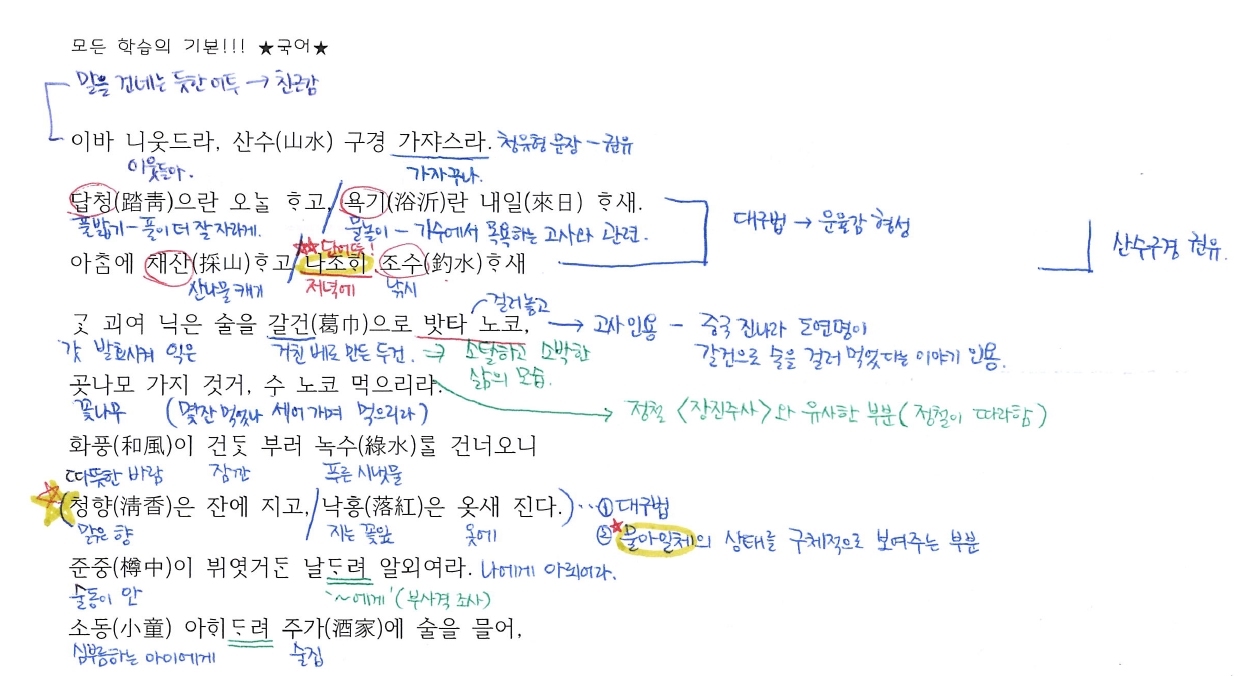 모든 학습의 기본!!! ★국어★
말을 건네는 듯한 어투 → 친근감
이바 니웃드라, 산수(山水) 구경 가쟈스라. 청유형 문장 - 권유
이웃들아. 가자꾸나.
답청(踏靑)으란 오ᄂᆞᆯ ᄒᆞ고, / 욕기(浴沂)란 내일(來日) ᄒᆞ새.
풀밟기 - 풀이 더 잘 자라게. 물놀이 - 기수에서 목욕하는 고사와 관련. 대구법 → 운율감 형성
★★ 단어뜻! 산수구경 권유.
아ᄎᆞᆷ에 채산(採山)ᄒᆞ고 / 나조ᄒᆡ 조수(釣水)ᄒᆞ새
산나물 캐기 저녁에 낚시
걸러 놓고
ᄀᆞᆺ 괴여 닉은 술을 갈건(葛巾)으로 밧타 노코, → 고사 인용 - 중국 진나라 도연명이
갓 발효시켜 익은 거친 베로 만든 두건. ⇒ 소탈하고 소박한 갈건으로 술을 걸러 먹었다는 이야기 인용.
삶의 모습.
곳나모 가지 것거, 수 노코 먹으리라.
꽃나무 (몇잔 먹었나 세어가며 먹으리라) → 정철 <장진주사>와 유사한 부분(정철이 따라함)
화풍(和風)이 건ᄃᆞᆺ 부러 녹수(綠水)ᄅᆞᆯ 건너오니
따뜻한 바람 잠깐 푸른 시냇물
(청향(淸香)은 잔에 지고, / 낙홍(落紅)은 옷새 진다.) … ① 대구법
맑은 향 지는 꽃잎 옷에 ②★물아일체의 상태를 구체적으로 보여주는 부분
준중(樽中)이 뷔엿거ᄃᆞᆫ 날ᄃᆞ려 알외여라. 나에게 아뢰어라.
술동이 안 '~에게' (부사격 조사)
소동(小童) 아ᄒᆡᄃᆞ려 주가(酒家)에 술을 믈어,
심부름하는 아이에게 술집